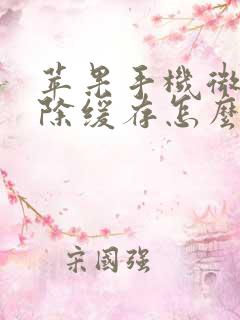 苹果手機微
除缓存怎麼
宋國强